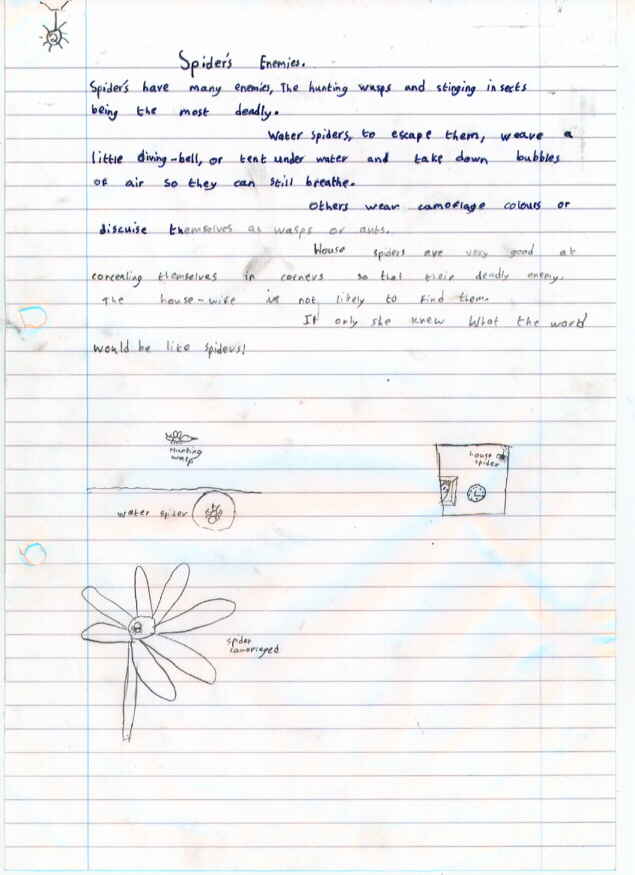 Spider's Enemies.
Spider's have many enemies, The hunting wasps and stinging insects
being the most deadly.
Water spiders, to escape them, weave a
little diving-bell, or tent under water and take down bubbles
of air so they can still breathe.
Others wear camoflage colours or
discuise themselves as wasps or ants.
House spiders are very good at
concerling themselves in corners so that their deadly enemy.
The house-wife is not likely to find them.
If only she knew what the world
would be like spiders!
Hunting
wasp
house
spider
water spider
spider
camoflaged